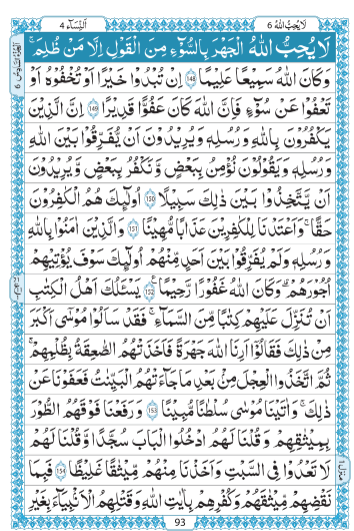 اَلنِّسَآء 4
لَا يُحِبُّ اللّٰهُ 6
لَا يُحِبُّ اللّٰهُ الْجَهْرَ بِالسُّوْٓءِ مِنَ الْقَوْلِ اِلَّا مَنْ ظُلِمَ ؕ
وَكَانَ اللّٰهُ سَمِيْعًا عَلِيْمًا ﴿148﴾ اِنْ تُبْدُوْا خَيْرًا اَوْ تُخْفُوْهُ اَوْ
تَعْفُوْا عَنْ سُوْٓءٍ فَاِنَّ اللّٰهَ كَانَ عَفُوًّا قَدِيْرًا ﴿149﴾ اِنَّ الَّذِيْنَ
يَكْفُرُوْنَ بِاللّٰهِ وَرُسُلِهٖ وَيُرِيْدُوْنَ اَنْ يُّفَرِّقُوْا بَيْنَ اللّٰهِ
وَرُسُلِهٖ وَيَقُوْلُوْنَ نُؤْمِنُ بِبَعْضٍ وَّ نَكْفُرُ بِبَعْضٍ وَّيُرِيْدُوْنَ
اَنْ يَّتَّخِذُوْا بَيْنَ ذٰلِكَ سَبِيْلًا ﴿150﴾ اُولٰٓئِكَ هُمُ الْكٰفِرُوْنَ
حَقًّا ۚ وَاَعْتَدْنَا لِلْكٰفِرِيْنَ عَذَابًا مُّهِيْنًا ﴿151﴾ وَالَّذِيْنَ اٰمَنُوْا بِاللّٰهِ
وَرُسُلِهٖ وَلَمْ يُفَرِّقُوْا بَيْنَ اَحَدٍ مِّنْهُمْ اُولٰٓئِكَ سَوْفَ يُؤْتِيْهِمْ
اُجُوْرَهُمْ ؕ وَكَانَ اللّٰهُ غَفُوْرًا رَّحِيْمًا ﴿152﴾ يَسْـَٔلُكَ اَهْلُ الْكِتٰبِ
اَنْ تُنَزِّلَ عَلَيْهِمْ كِتٰبًا مِّنَ السَّمَآءِ فَقَدْ سَاَلُوْا مُوْسٰٓى اَكْبَرَ
مِنْ ذٰلِكَ فَقَالُوْٓا اَرِنَا اللّٰهَ جَهْرَةً فَاَخَذَتْهُمُ الصّٰعِقَةُ بِظُلْمِهِمْ ۚ
ثُمَّ اتَّخَذُوا الْعِجْلَ مِنْۢ بَعْدِ مَا جَآءَتْهُمُ الْبَيِّنٰتُ فَعَفَوْنَا عَنْ
ذٰلِكَ ۚ وَاٰتَيْنَا مُوْسٰى سُلْطٰنًا مُّبِيْنًا ﴿153﴾ وَرَفَعْنَا فَوْقَهُمُ الطُّوْرَ
بِمِيْثَاقِهِمْ وَقُلْنَا لَهُمُ ادْخُلُوا الْبَابَ سُجَّدًا وَّقُلْنَا لَهُمْ
لَا تَعْدُوْا فِى السَّبْتِ وَاَخَذْنَا مِنْهُمْ مِّيْثَاقًا غَلِيْظًا ﴿154﴾ فَبِمَا
نَقْضِهِمْ مِّيْثَاقَهُمْ وَكُفْرِهِمْ بِاٰيٰتِ اللّٰهِ وَقَتْلِهِمُ الْاَنْۢبِيَآءَ بِغَيْرِ
93